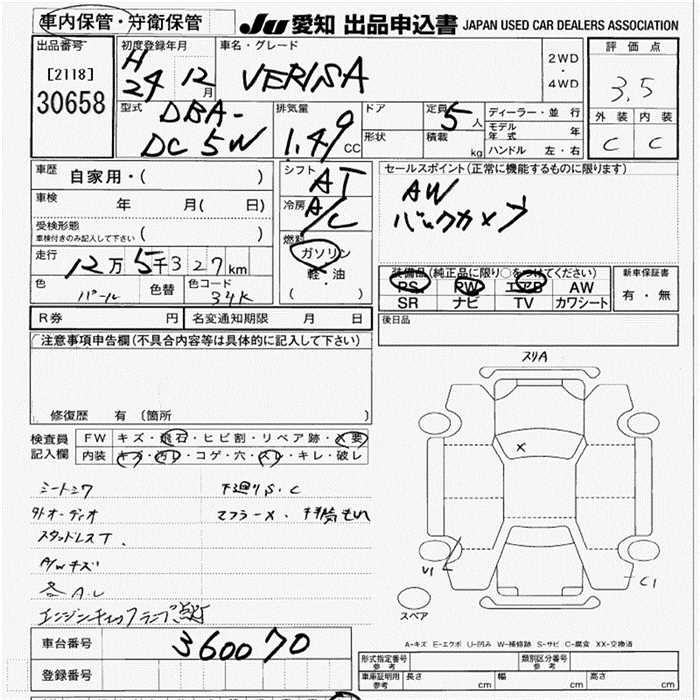 車内保管・守衛保管
JU 愛知 出品申込書 JAPAN USED CAR DEALERS ASSOCIATION
出品番号
[2118]
30658
初度登録年月
H
24 12月
車名・グレード
VERISA
2WD
・
4WD
評価点
3.5
外装 内装
C C
型式
DBA-
DC5W
排気量
1.49 CC
ドア
形状
定員 5人
積載 kg
ディーラー・並行
モデル年式 年
ハンドル 左・右
車歴 自家用・( )
車検 年 月( 日)
受検形態
車検付きのみ記入して下さい ( )
走行 12万5千327km
色 パール
色替
色コード 34K
シフト AT
冷房 A/C
燃料
ガソリン
軽・油
( )
セールスポイント(正常に機能するものに限ります)
AW
バックカメラ
装備品(純正品に限り○をつけてください)
PS PW エアB AW
SR ナビ TV カワシート
新車保証書
有・無
R券 円 名変通知期限 月 日
後日品
注意事項申告欄(不具合内容等は具体的に記入して下さい)
修復歴 有 (箇所
検査員
記入欄
FW キズ・飛石・ヒビ割・リペア跡・X要
内装 キズ・汚レ・コゲ・穴・スレ・キレ・破レ
シートシワ
下廻りS.C
外オーディオ
マフラーメ、排気もれ
スタッドレスT.
A/Wキズ
各A.U
エンジンチェックランプ点灯
スリA
X
U1
C1
スペア
A-キズ E-エクボ U-凹み W-補修跡 S-サビ C-腐食 XX-交換済
車台番号 360070
登録番号
形式指定番号
参考
類別区分番号
参考
車庫証明用
参考
長さ cm 幅 cm 高さ cm